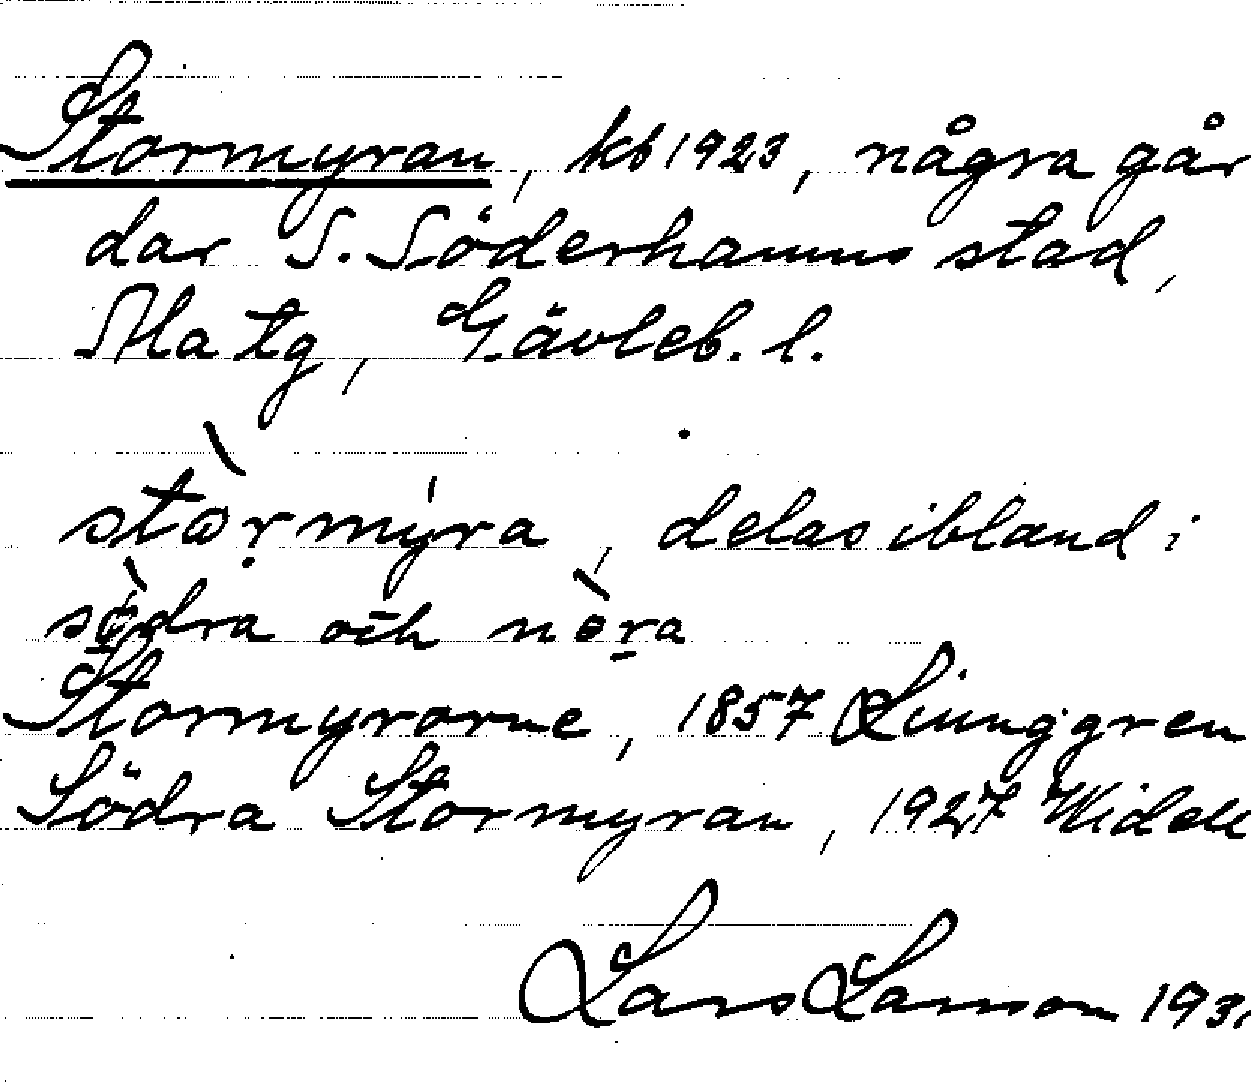 Stormyran, kb 1923, några går
dar S. Söderhamns stad,
Ala tg, Gävleb. l.
stòrmýra, delas ibland i
södra och nòra
Stormyrorne, 1857 Ljunggren
Södra Stormyran, 1927 Widell
Lars Larson 193